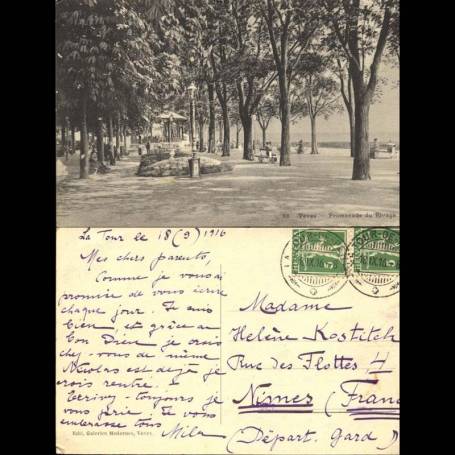 22 Vevey - Promenade du Rivage
La Tour le 18 (9) 1916
Mes chers parents,
Comme je vous ai
promise de vous écrire
chaque jour. Je suis
bien, et grâce au
bon Dieu je crois
chez-vous de même
Nicolas est déjà je
crois rentré. -
Ecrivez-toujours je
vous prie. Je vous
embrasse tous
Mila
Edit. Galeries Modernes, Vevey.
Madame
Helène Kostitch
Rue des Flottes 4
Nimes (Franc
(Départ. Gard)